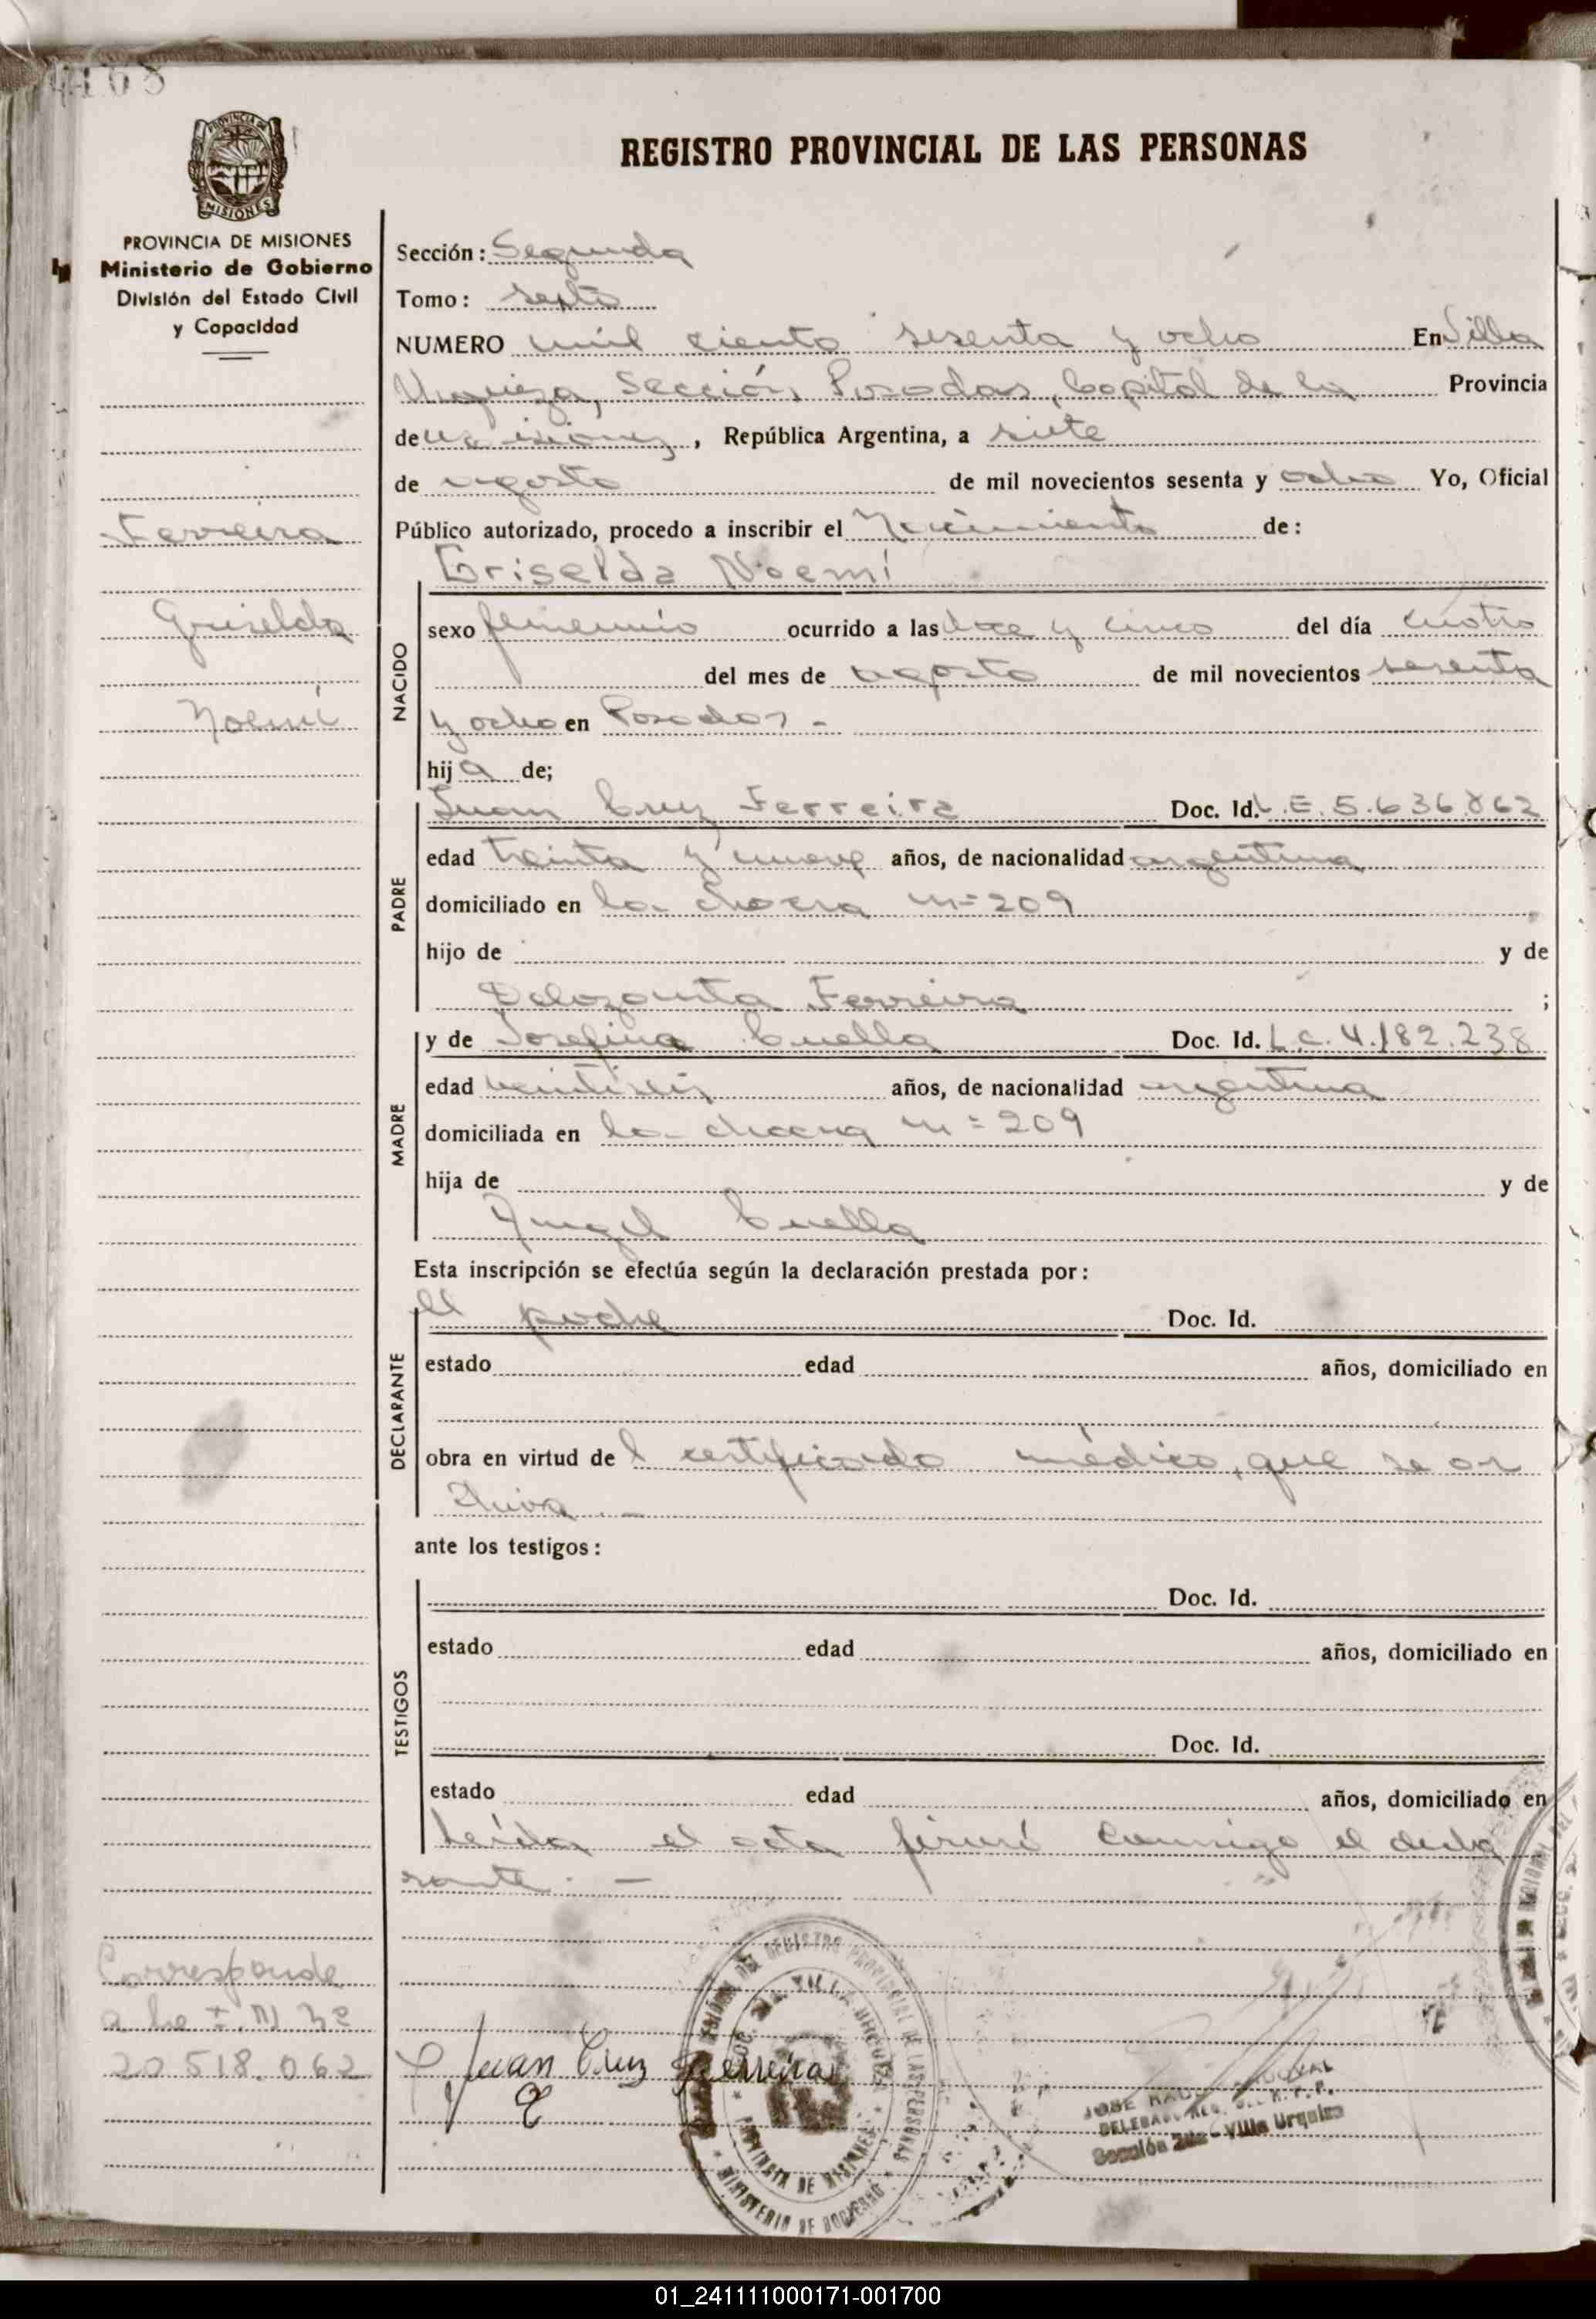 1168
PROVINCIA DE MISIONES
Ministerio de Gobierno
División del Estado Civil
y Capacidad
Ferreira
Griselda
Noemí
Corresponde
a la
20.518.062
REGISTRO PROVINCIAL DE LAS PERSONAS
Sección: Segunda
Tomo: sexto
NUMERO mil ciento sesenta y ocho En Villa
Urquiza, Sección, Posadas, Capital de la Provincia
de Misiones, República Argentina, a siete
de agosto de mil novecientos sesenta y ocho Yo, Oficial
Público autorizado, procedo a inscribir el Nacimiento de:
Griselda Noemí
NACIDO
sexo femenino ocurrido a las doce y cinco del día cuatro
del mes de agosto de mil novecientos sesenta
y ocho en Posadas -
hija de;
PADRE
Juan Cruz Ferreira Doc. Id. L.E. 5.636.862
edad treinta y nueve años, de nacionalidad argentina
domiciliado en la chacra n=209
hijo de y de
Ferreira ;
MADRE
y de Josefina Cuella Doc. Id. L.C. 4.182.238
edad veintiseis años, de nacionalidad argentina
domiciliada en la chacra n=209
hija de y de
Angel Cuella
Esta inscripción se efectúa según la declaración prestada por:
DECLARANTE
el padre Doc. Id.
estado edad años, domiciliado en
obra en virtud del certificado médico, que se ar
chiva. -
ante los testigos:
TESTIGOS
Doc. Id.
estado edad años, domiciliado en
Doc. Id.
estado edad años, domiciliado en
Leída el acta firmó conmigo el decla
rante. -
Juan Cruz Ferreira
REGISTRO PROVINCIAL DE LAS PERSONAS
VILLA URQUIZA
PROVINCIA DE MISIONES
MINISTERIO DE GOBIERNO
JOSE RAUL SANDOVAL
Sección 2da - Villa Urquiza
01_241111000171-001700